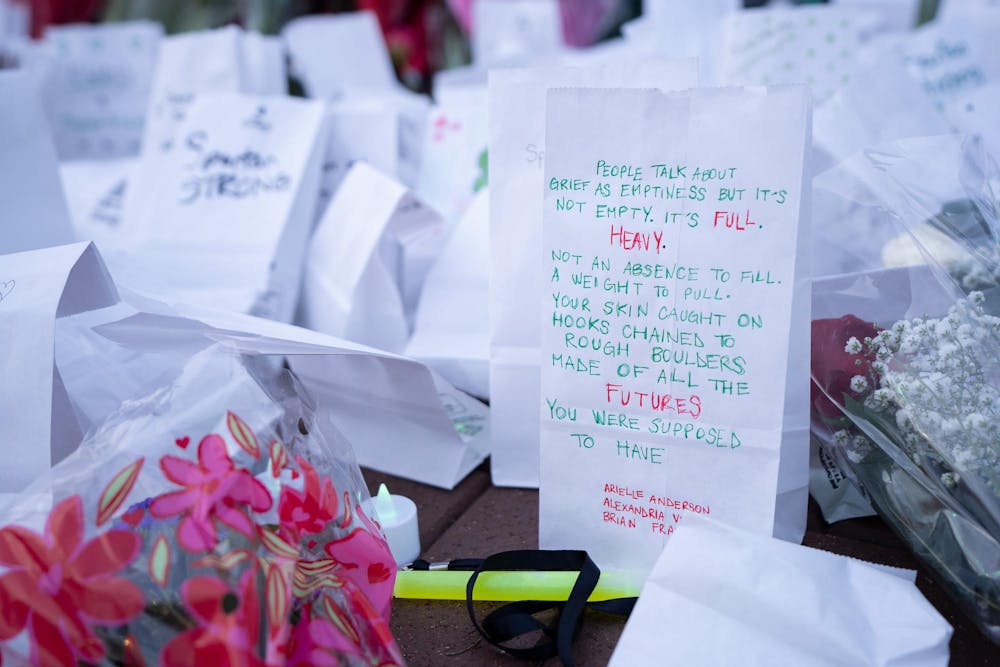 PEOPLE TALK ABOUT
GRIEF AS EMPTINESS BUT IT'S
NOT EMPTY. IT'S FULL.
HEAVY.
NOT AN ABSENCE TO FILL.
A WEIGHT TO PULL.
YOUR SKIN CAUGHT ON
HOOKS CHAINED TO
ROUGH BOULDERS
MADE OF ALL THE
FUTURES
YOU WERE SUPPOSED
TO HAVE
ARIELLE ANDERSON
ALEXANDRIA
BRIAN
STRONG